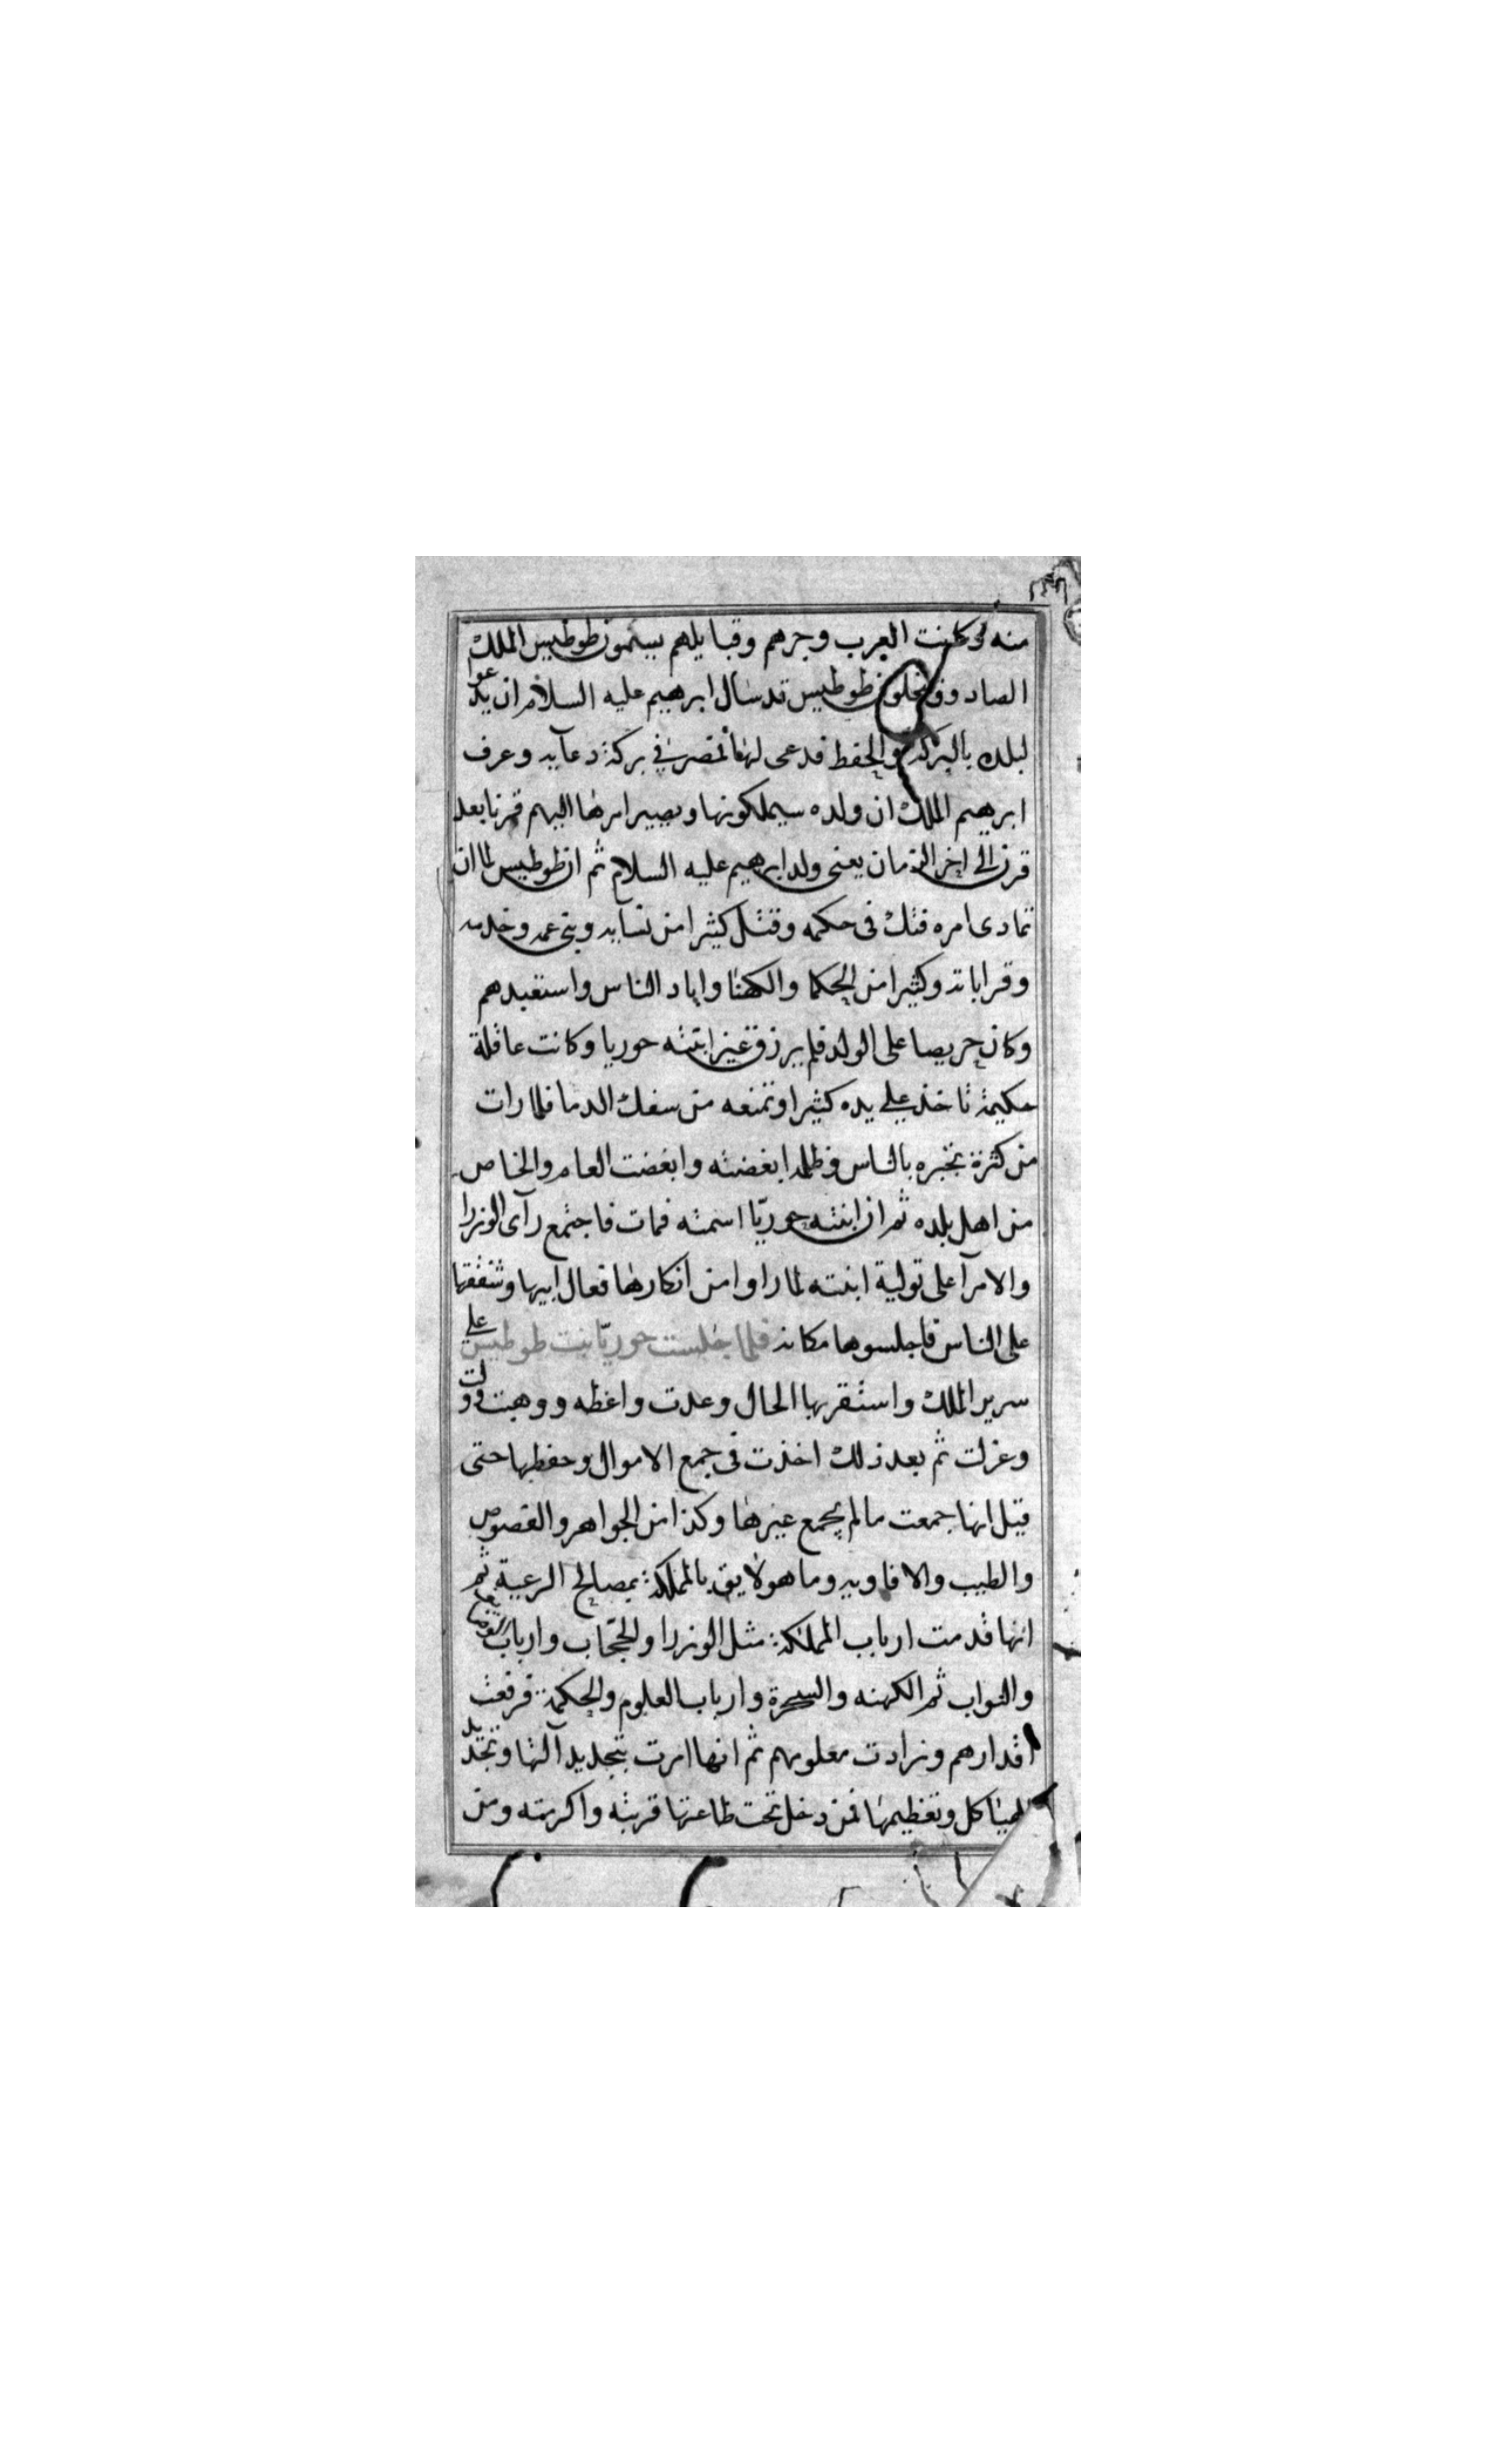 منه وكانت العرب وجرهم وقبايلهم يسمون طوطيس الملك
الصادوق طوطيس قد سال ابرهيم عليه السلام ان يدعو
لبلده بالبركة والحفظ فدعى لها فمصر في بركة دعآيه وعرف
ابرهيم الملك ان ولده سيملكونها ويصير امرها اليهم قرنا بعد
قرن الى اخر الزمان يعنى ولد ابرهيم عليه السلام ثم ان طوطيس لما ان
تمادى امره فتك فى حكمه وقتل كثيرا من نسآيه وبنى عمه وخدمه
وقراباته وكثيرا من الحكما والكهنا واباد الناس واستعبدهم
وكان حريصا على الولد فلم يرزق غير ابنته حوريا وكانت عاقلة
حكيمة تاخذ على يده كثيرا وتمنعه من سفك الدما فلما رات
من كثرة تجبره بالناس وظلمه ابغضته وابغضت العام والخاص
من اهل بلده ثم ان ابنته حوريّا اسمته فمات فاجتمع رآى الوزرا
والامرآ على تولية ابنته لما راوا من انكارها فعال ابيها وشفقتها
على الناس فاجلسوها مكانه فلما جلست حوريّا بنت طوطيس على
سرير الملك واستقر بها الحال وعدت واغظه ووهبت وولت
وعزلت ثم بعد ذلك اخذت فى جمع الاموال وحفظها حتى
قيل انها جمعت ما لم يجمع غيرها وكذا من الجواهر والفصوص
والطيب والافاويه وما هو لايق بالمملكة بمصالح الرعية ثم
انها قدمت ارباب المملكة مثل الوزرا والحجّاب وارباب
والنواب ثم الكهنه والسحرة وارباب العلوم والحكمة فرفعت
اقدارهم وزادت معلومهم ثم انها امرت بتجديد آلتها وتجديد
الهياكل وتعظيمها فمن دخل تحت طاعتها قربته واكرمته ومن